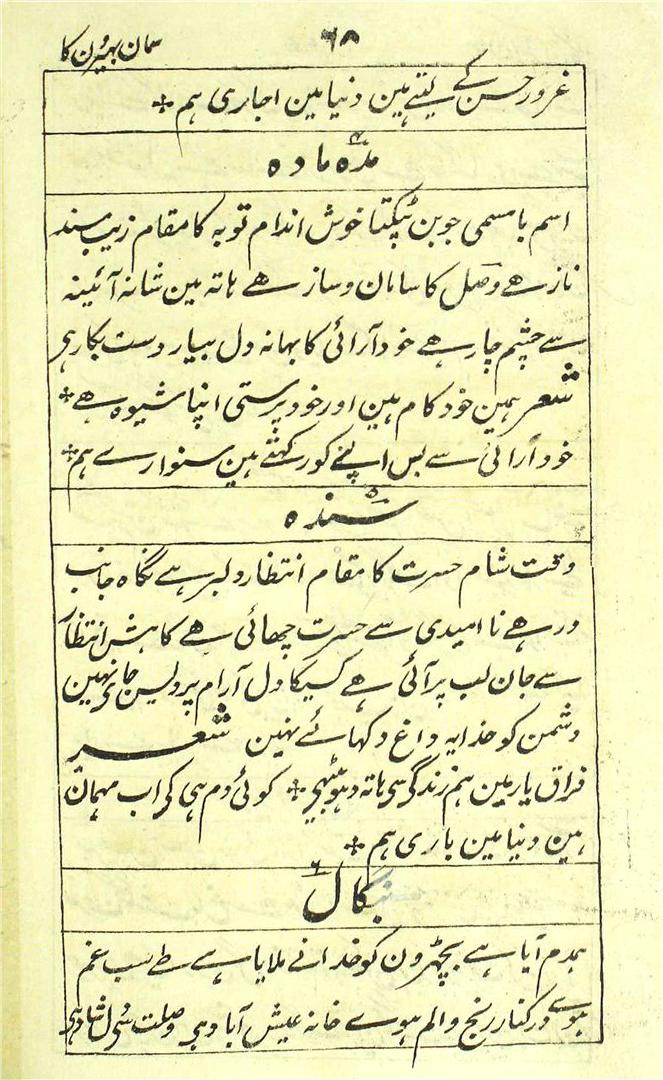 ۶۸
سمان بہیرُن کا
غرور حسن کے لیتے ہین دنیا مین اجاری ہم
مدہ مادہ
اسم بامسمی جوبن ٹپکتا خوش اندام توبہ کا مقام زیب مسند
ناز ہے وصل کا سامان و ساز ہے ہاتہ مین شانہ آئینہ
سے چشم چار ہے خود آرائی کا بہانہ دل بیار دست بکار ہی
شعر ہمین خود کام ہین اور خود پرستی اپنا شیوہ ہے
خود آرائی سے بس اپنے کو رکہتے ہین سنوارے ہم
سندہ ۵
وقت شام حسرت کا مقام انتظار دلبر ہے نگاہ جانب
در ہے نا امیدی سے حسرت چھائی ہے کاہش انتظار
سے جان لب پر آئی ہے کسیکا دل آرام پردیس جائے نہین
دشمن کو خدا یہ داغ دکہائے نہین شعر
فراق یار مین ہم زندگی سی ہاتہ دہو بیٹہی کوئی دم ہی کی اب مہمان
ہین دنیا مین باری ہم
بنگال ۶
ہمدم آیا ہے بچھڑون کو خدا نے ملایا ہے طے سب غم
ہوے درکنار رنج و الم ہوے خانہ عیش آباد ہی وصلت سی دل شاد ہی